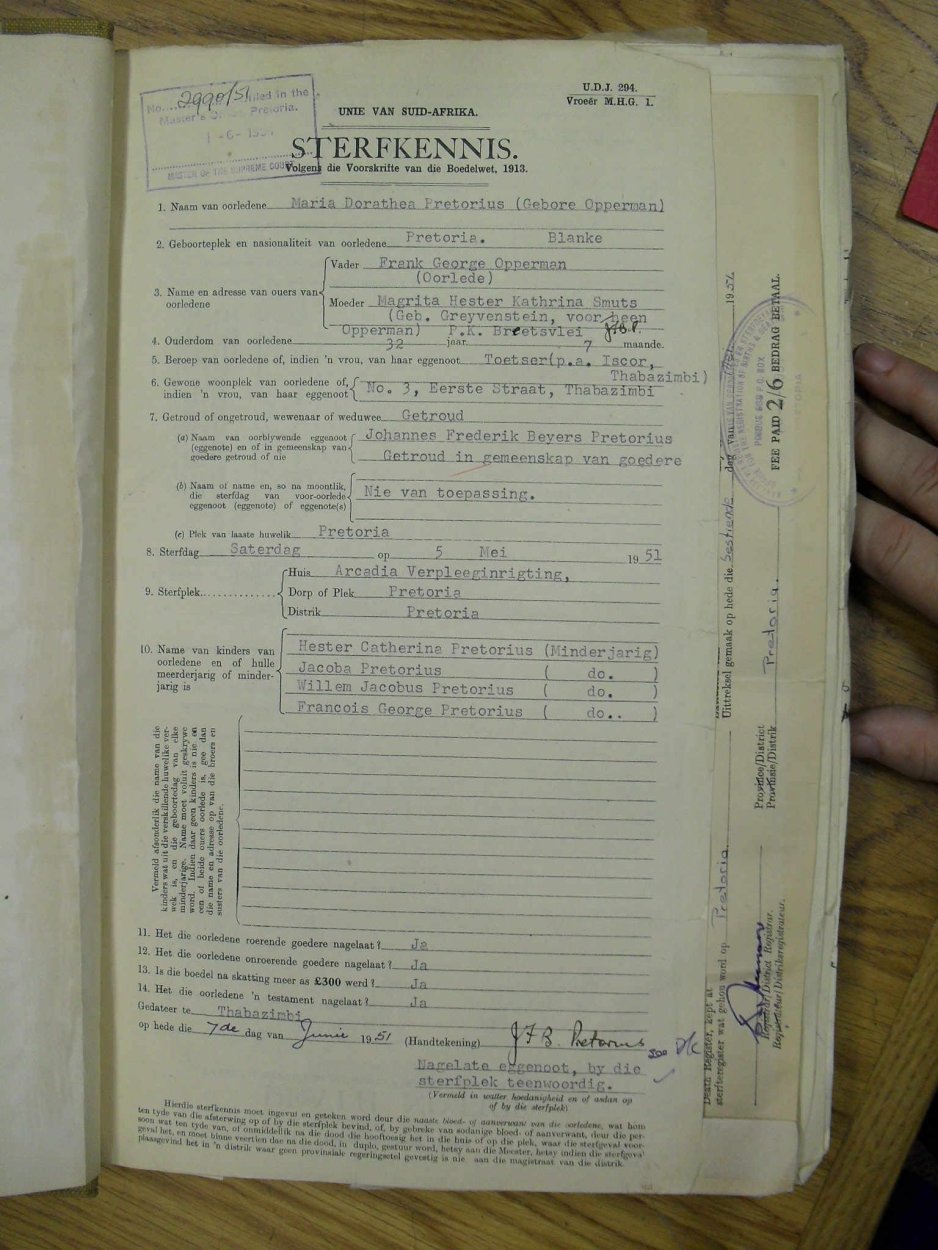 No. 2990/51 filed in the
Master's Office, Pretoria.
MASTER OF THE SUPREME COURT
U.D.J. 294.
Vroeër M.H.G. 1.
UNIE VAN SUID-AFRIKA.
STERFKENNIS.
Volgens die Voorskrifte van die Boedelwet, 1913.
1. Naam van oorledene Maria Dorathea Pretorius (Gebore Opperman)
2. Geboorteplek en nasionaliteit van oorledene Pretoria. Blanke
3. Name en adresse van ouers van oorledene
Vader Frank George Opperman
(Oorlede)
Moeder Magrita Hester Kathrina Smuts
(Geb. Greyvenstein, voorheen
Opperman) P.K. Breetsvlei
4. Ouderdom van oorledene 32 jaar 7 maande.
5. Beroep van oorledene of, indien 'n vrou, van haar eggenoot Toetser(p.a. Iscor,
Thabazimbi)
6. Gewone woonplek van oorledene of,
indien 'n vrou, van haar eggenoot No. 3, Eerste Straat, Thabazimbi
7. Getroud of ongetroud, wewenaar of weduwee Getroud
(a) Naam van oorblywende eggenoot
(eggenote) en of in gemeenskap van
goedere getroud of nie
Johannes Frederik Beyers Pretorius
Getroud in gemeenskap van goedere
(b) Naam of name en, so na moontlik,
die sterfdag van voor-oorlede
eggenoot (eggenote) of eggenote(s)
Nie van toepassing.
(c) Plek van laaste huwelik Pretoria
8. Sterfdag Saterdag op 5 Mei 1951
9. Sterfplek
Huis Arcadia Verpleeginrigting,
Dorp of Plek Pretoria
Distrik Pretoria
10. Name van kinders van
oorledene en of hulle
meerderjarig of minder-
jarig is
Hester Catherina Pretorius (Minderjarig)
Jacoba Pretorius ( do. )
Willem Jacobus Pretorius ( do. )
Francois George Pretorius ( do.. )
Vermeld afsonderlik die name van die
kinders wat uit die verskillende huwelike ver-
wek is, en die geboortedag van elke
minderjarige. Name moet voluit geskrywe
word. Indien daar geen kinders is nie en
een of beide ouers oorlede is, gee dan
die name en adresse op van die broers en
susters van die oorledene.
11. Het die oorledene roerende goedere nagelaat? Ja
12. Het die oorledene onroerende goedere nagelaat? Ja
13. Is die boedel na skatting meer as £300 werd? Ja
14. Het die oorledene 'n testament nagelaat? Ja
Gedateer te Thabazimbi
op hede die 7de dag van Junie 1951 (Handtekening) JFB Pretorius
Nagelate eggenoot, by die
sterfplek teenwoordig.
(Vermeld in watter hoedanigheid en of asdan op
of by die sterfplek)
Hierdie sterfkennis moet ingevul en geteken word deur die naaste bloed- of aanverwant van die oorledene, wat hom
ten tyde van die afsterwing op of by die sterfplek bevind, of, by gebreke van sodanige bloed- of aanverwant, deur die per-
soon wat ten tyde van, of onmiddellik na die dood die hooftoesig het in die huis of op die plek, waar die sterfgeval voor-
geval het, en moet binne veertien dae na die dood, in duplo, gestuur word, hetsy aan die Meester, hetsy indien die sterfgeval
plaasgevind het in 'n distrik waar geen provinsiale regeringsetel gevestig is nie aan die magistraat van die distrik.
Death Register, kept at
sterfteregister wat gehou word op Pretoria
Uittreksel gemaak op hede die sestiende dag van
Registrar/District Registrar.
Registrateur/Distriksregistrateur.
Province/District
Provinsie/Distrik Pretoria.
FEE PAID 2/6 BEDRAG BETAAL.